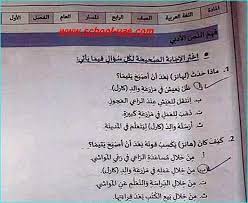 المادة اللغة العربية الصف الرابع المسار العام الفصل الأول
www.schooluae.com
فهم النص الأدبي
اختر الإجابة الصحيحة لكل سؤال فيما يأتي:
1. ماذا حدث (لهانز) بعد أن أصبح يتيما؟
أ. ظل يعيش في مزرعة والد (كارل).
ب. انتقل للعيش عند الراعي العجوز.
ت. أرسله والد (كارل) ليتعلم في المدينة.
2. كيف كان (هانز) يكسب قوته بعد أن أصبح يتيما؟
أ. من خلال مساعدة الراعي في رعي المواشي.
ب. من خلال عمله في مزرعة والد (كارل).
ت. من خلال الدراسة والتعلم عن المواشي.
ث. من خلال كسب الكتب بعد قراءتها.